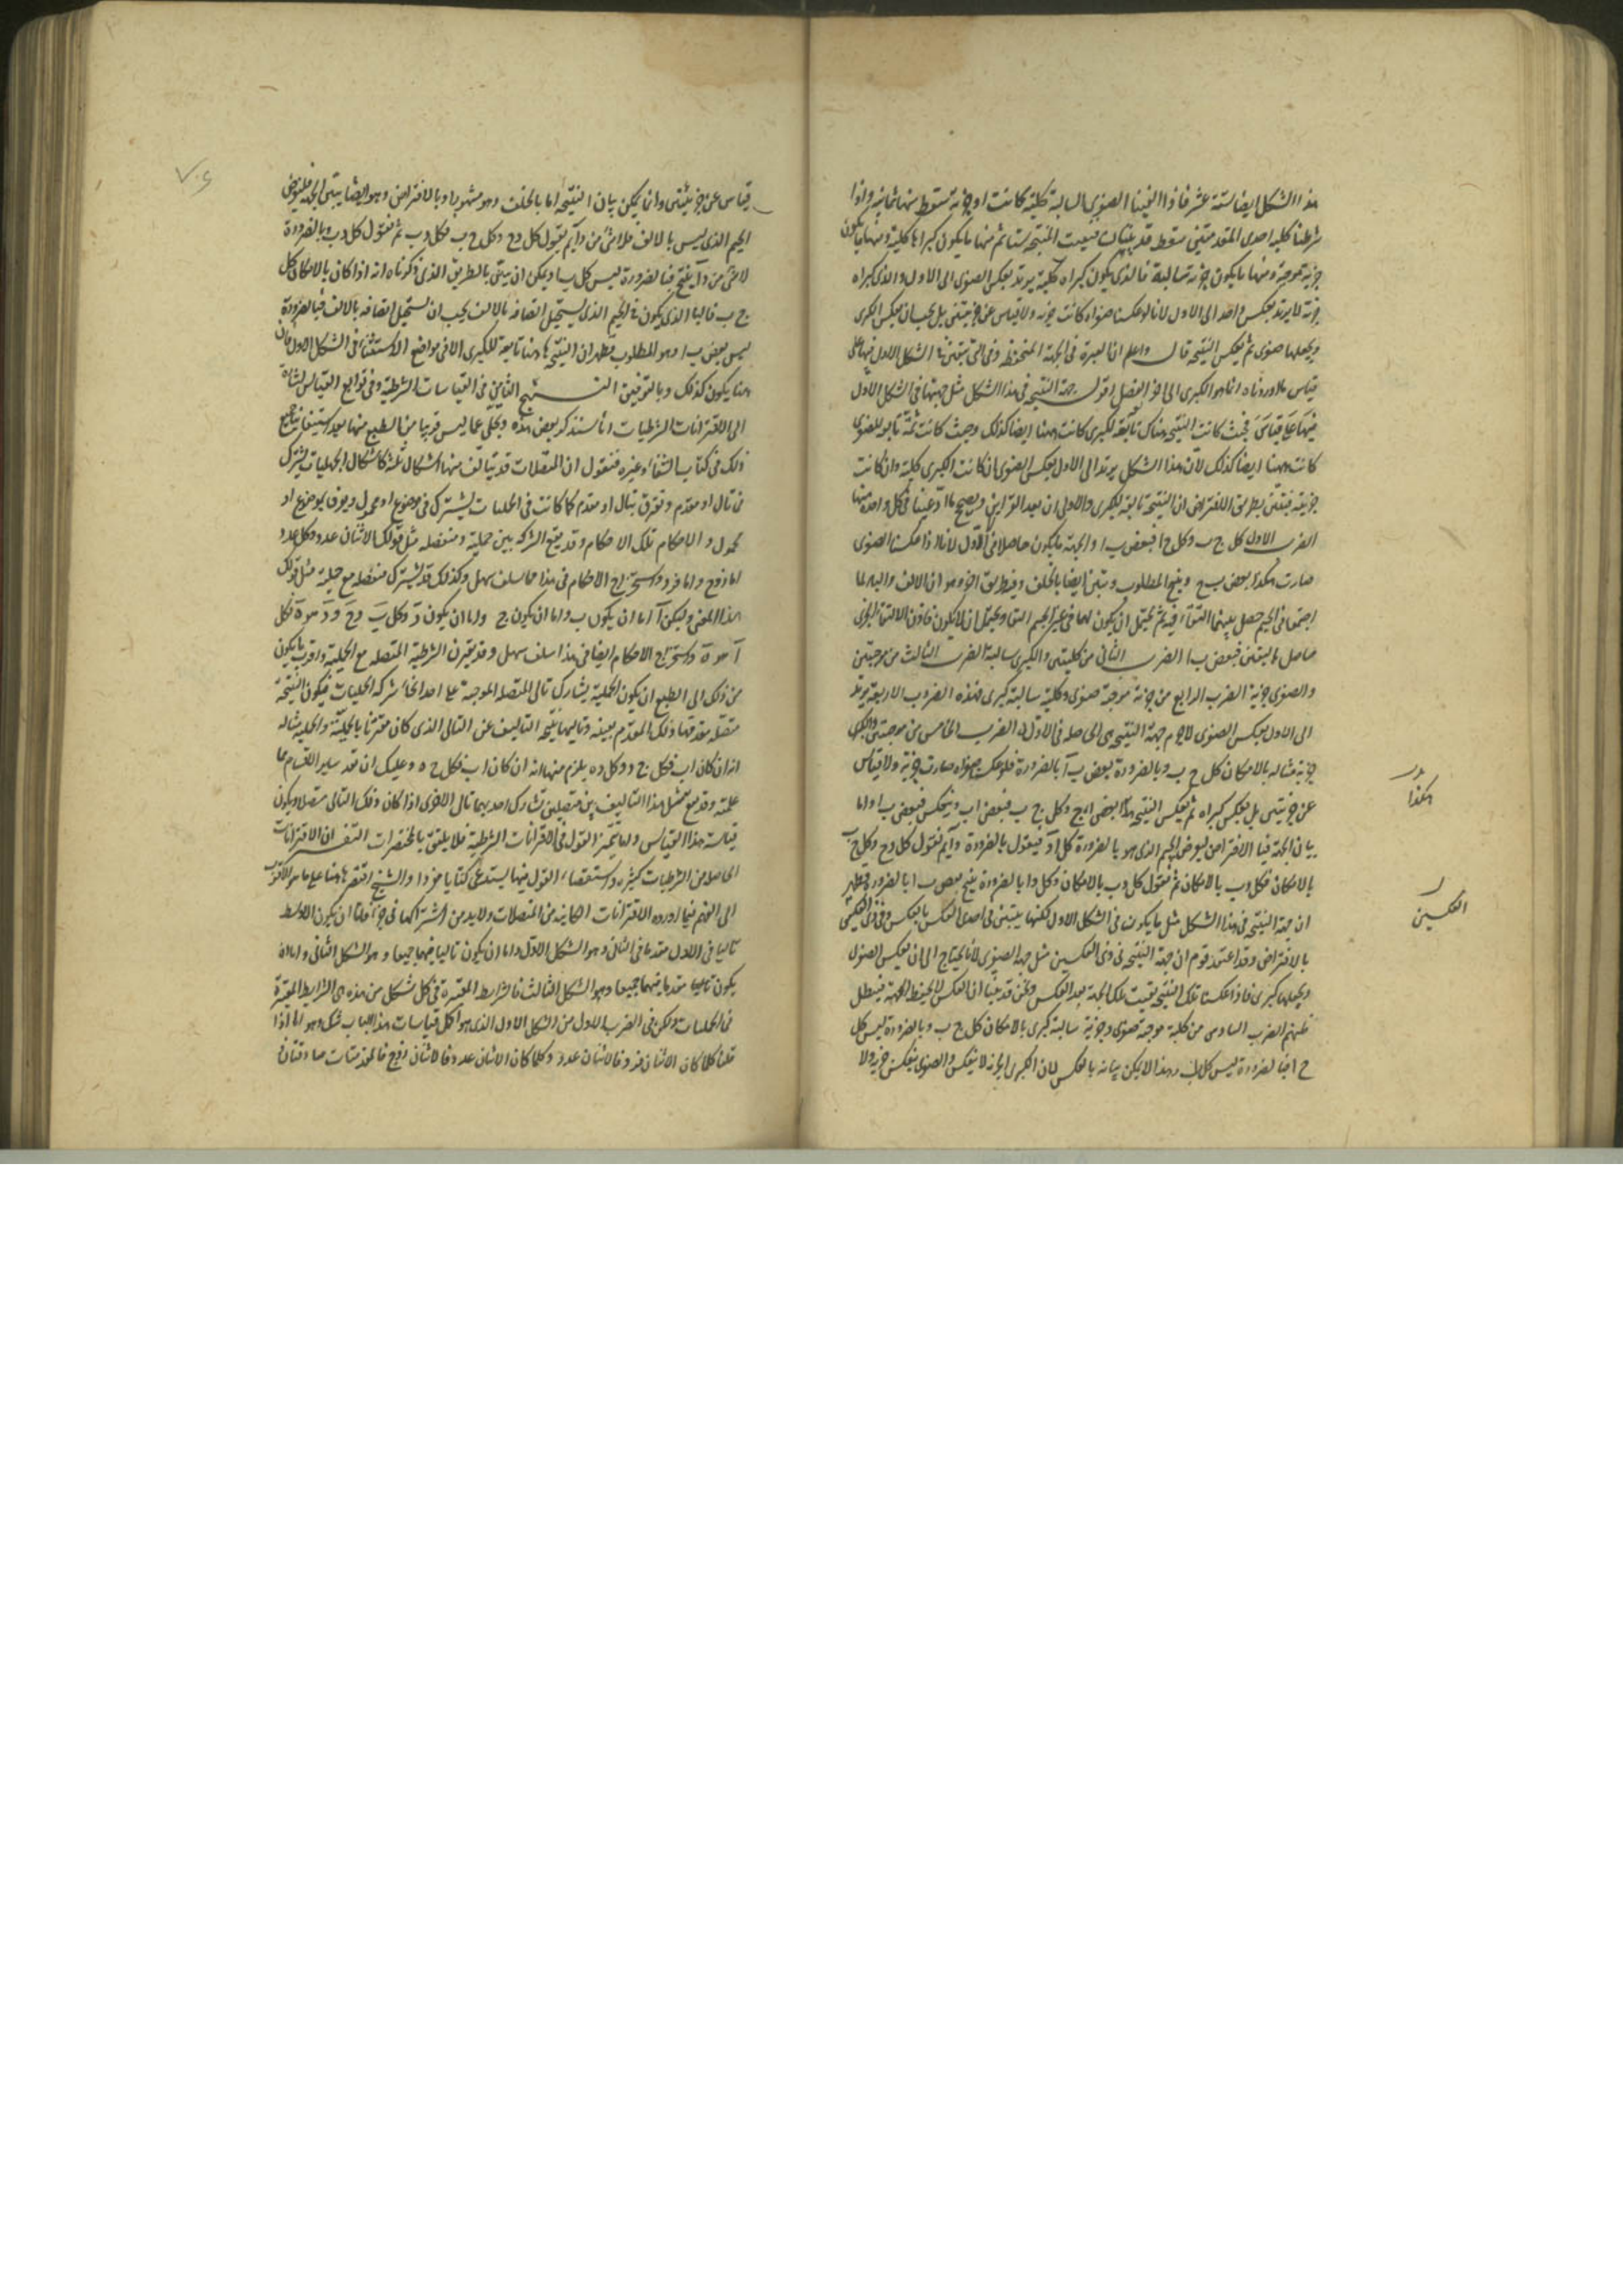 هذا الشكل ايضا ستة عشر فاذا الغينا الصغرى السالبة كلية كانت او جزئية سقط منها ثمانية واذا
شرطنا كلية احدى المقدمتين سقط قرينتان فبقيت المنتجة ستا ثم منها ما يكون كبراها كلية ومنها ما يكون
جزئية موجبة ومنها ما يكون جزئية سالبة فالذى يكون كبراه كلية يرتد بعكس الصغرى الى الاول والذى كبراه
جزئية لا يرتد بعكس واحد الى الاول لانا لو عكسنا صغراه كانت جزئية ولا قياس عن جزئيتين بل يجب ان يعكس الكبرى
ويجعلها صغرى ثم يعكس النتيجة قال واعلم ان العبرة فى الجهة المنحفظة وفى التى يتبين فى الشكل الاول فيها على
قياس ما اوردناه انما هو الكبرى الى اخر الفصل اقول جهة النتيجة فى هذا الشكل مثل جهتها فى الشكل الاول
فيها على قياس فحيث كانت النتيجة هناك تابعة للكبرى كانت ههنا ايضا كذلك وحيث كانت ثمة تابعة للصغرى
كانت ههنا ايضا كذلك لان هذا الشكل يرتد الى الاول بعكس الصغرى ان كانت الكبرى كلية وان كانت
جزئية فيتبين بطريق الافتراض ان النتيجة تابعة للكبرى والاولى ان نعد القرائن ونصحح ما ادعينا فى كل واحدة منها
الضرب الاول كل ج ب وكل ج ا فبعض ب ا والجهة ما يكون حاصلا فى الاول لانا اذا عكسنا الصغرى
صارت هكذا بعض ب ج وينتج المطلوب ويتبين ايضا بالخلف وفيه طريق اخر وهو ان الالف والباء لما
اجتمعا فى الجيم حصل بينهما التقاء فيه ثم يحتمل ان يكون لهما فى غير الجيم التقاء ويحتمل ان لا يكون فاذن الالتقاء الجزئى
حاصل باليقين فبعض ب ا الضرب الثانى من كليتين والكبرى سالبة الضرب الثالث من موجبتين
والصغرى جزئية الضرب الرابع من جزئية موجبة صغرى وكلية سالبة كبرى فهذه الضروب الاربعة يرتد
الى الاول بعكس الصغرى لا جرم جهة النتيجة هى الحاصلة فى الاول الضرب الخامس من موجبتين والكبرى
جزئية مثاله بالامكان كل ج ب وبالضرورة بعض ج ا بالضرورة فلو عكس صغراه صارت جزئية ولا قياس
عن جزئيتين بل يعكس كبراه ثم يعكس النتيجة هكذا بعض ا ج وكل ج ب فبعض ا ب وينعكس فبعض ب ا واما
بيان الجهة فبالافتراض ليفرض الجيم الذى هو بالضرورة كل ا د فيقول بالضرورة د ا ثم نقول كل د ج وكل ج ب
بالامكان فكل د ب بالامكان ثم نقول كل د ب بالامكان وكل د ا بالضرورة ينتج بعض ب ا بالضرورة فظهر
ان جهة النتيجة فى هذا الشكل مثل ما يكون فى الشكل الاول لكنها يتبين فى احدى العكس بالعكس وفى ذى العكسين
بالافتراض وقد اعتقد قوم ان جهة النتيجة فى ذى العكسين مثل جهة الصغرى لانا نحتاج الى ان نعكس الصغرى
ونجعلها كبرى فاذا عكسنا تلك النتيجة بقيت تلك الجهة بعد العكس ونحن قد بينا ان العكس لا يحفظ الجهة فيبطل
ظنهم الضرب السادس من كلية موجبة صغرى وجزئية سالبة كبرى بالامكان كل ج ب وبالضرورة ليس كل
ج ا فبالضرورة ليس كل ب ا وهذا لا يمكن بيانه بالعكس لان الكبرى الجزئية لا ينعكس والصغرى ينعكس جزئية ولا
هكذا
العكسين
قياس عن جزئيتين وانما يمكن بيان النتيجة اما بالخلف وهو مشهور او بالافتراض وهو ايضا يبين الجهة فليفرض
الجيم الذى ليس بالالف د فلا شئ من د ا ثم يقول كل د ج وكل ج ب فكل د ب ثم نقول كل د ب وبالضرورة
لا شئ من د ا ينتج فبالضرورة ليس كل ب ا ويمكن ان يبين بالطريق الذى ذكرناه انه اذا كان بالامكان كل
ج ب فالباء الذى يكون فى الجيم الذى يستحيل اتصافه بالالف يجب ان يستحيل اتصافه بالالف فبالضرورة
ليس بعض ب ا وهو المطلوب فظهر ان النتيجة ها هنا تابعة للكبرى الا فى مواضع الاستثناء فى الشكل الاول فان
ههنا يكون كذلك وبالله التوفيق النهج الثامن فى القياسات الشرطية وفى توابع القياس اشارة
الى الاقترانات الشرطيات انا سنذكر بعض هذه ونخلى عما ليس قريبا من الطبع منها بعد استيفائنا جميع
ذلك فى كتاب الشفاء وغيره فنقول ان المتصلات قد يتالف منها اشكال ثلثة كاشكال الحمليات يشترك
فى تال او مقدم ويفترق بتال او مقدم كما كانت فى الحمليات يشترك فى موضوع او محمول ويفترق بموضوع او
محمول والاحكام تلك الاحكام وقد يقع الشركة بين حملية ومنفصلة مثل قولك الاثنان عدد وكل عدد
اما زوج واما فرد واستخراج الاحكام فى هذا مما سلف سهل وكذلك قد يشترك منفصلة مع حملية مثل قولك
هذا المعنى وليكن ا اما ان يكون ب واما ان يكون ج واما ان يكون د وكل ب و ج و د هو ه فكل
ا هو ه واستخراج الاحكام ايضا فى هذا سلف سهل وقد يقترن الشرطية المتصلة مع الحملية واقرب ما يكون
من ذلك الى الطبع ان يكون الحملية يشارك تالى المتصلة الموجبة على احد انحاء شركة الحمليات فيكون النتيجة
متصلة مقدمها ذلك المقدم بعينه وتاليها نتيجة التاليف من التالى الذى كان مقترنا بالحملية والحملية مثاله
انه ان كان ا ب فكل ج د وكل د ه يلزم منها انه ان كان ا ب فكل ج ه وعليك ان تعد ساير الاقسام مما
علمته وقد يقع مثل هذا التاليف بين متصلتين تشارك احديهما تالى الاخرى اذا كان ذلك التالى متصلا ويكون
قياسه هذا القياس واما تتميم القول فى الاقترانات الشرطية فلا يليق بالمختصرات التفسير ان الاقترانات
الحاصلة من الشرطيات كثيرة واستقصاء القول فيها يستدعى كتابا مفردا والشيخ اقتصر ها هنا على ما هو الاقرب
الى الفهم فيما اورده الاقترانات الكاينة من المتصلات ولا بد من اشتراكهما فى جزء فاما ان يكون الاوسط
تاليا فى الاول مقدما فى الثانى وهو الشكل الاول واما ان يكون تاليا فيهما جميعا وهو الشكل الثانى واما ان
يكون مقدما فيهما جميعا وهو الشكل الثالث فالشرايط المعتبرة فى كل شكل من هذه هى الشرايط المعتبرة
فى الحمليات ولكن فى الضرب الاول من الشكل الاول الذى هو اكمل قياسات هذا الباب شك وهو انا اذا
قلنا كلما كان الاثنان فردا فالاثنان عدد وكلما كان الاثنان عددا فالاثنان زوج فالمقدمتان صادقتان